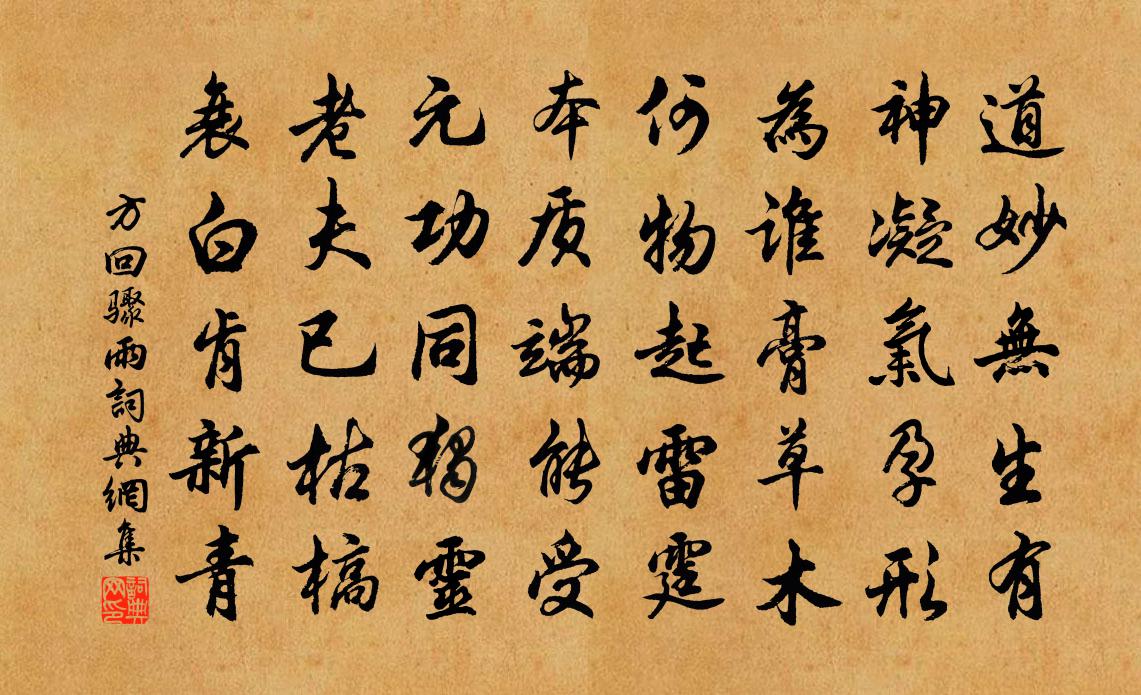 道妙無生有
神凝氣孕形
為誰膏草木
何物起雷霆
本质端能受
元功同獨靈
老夫已枯槁
衰白肯新青
方回驟雨詞典網集
詞典网印